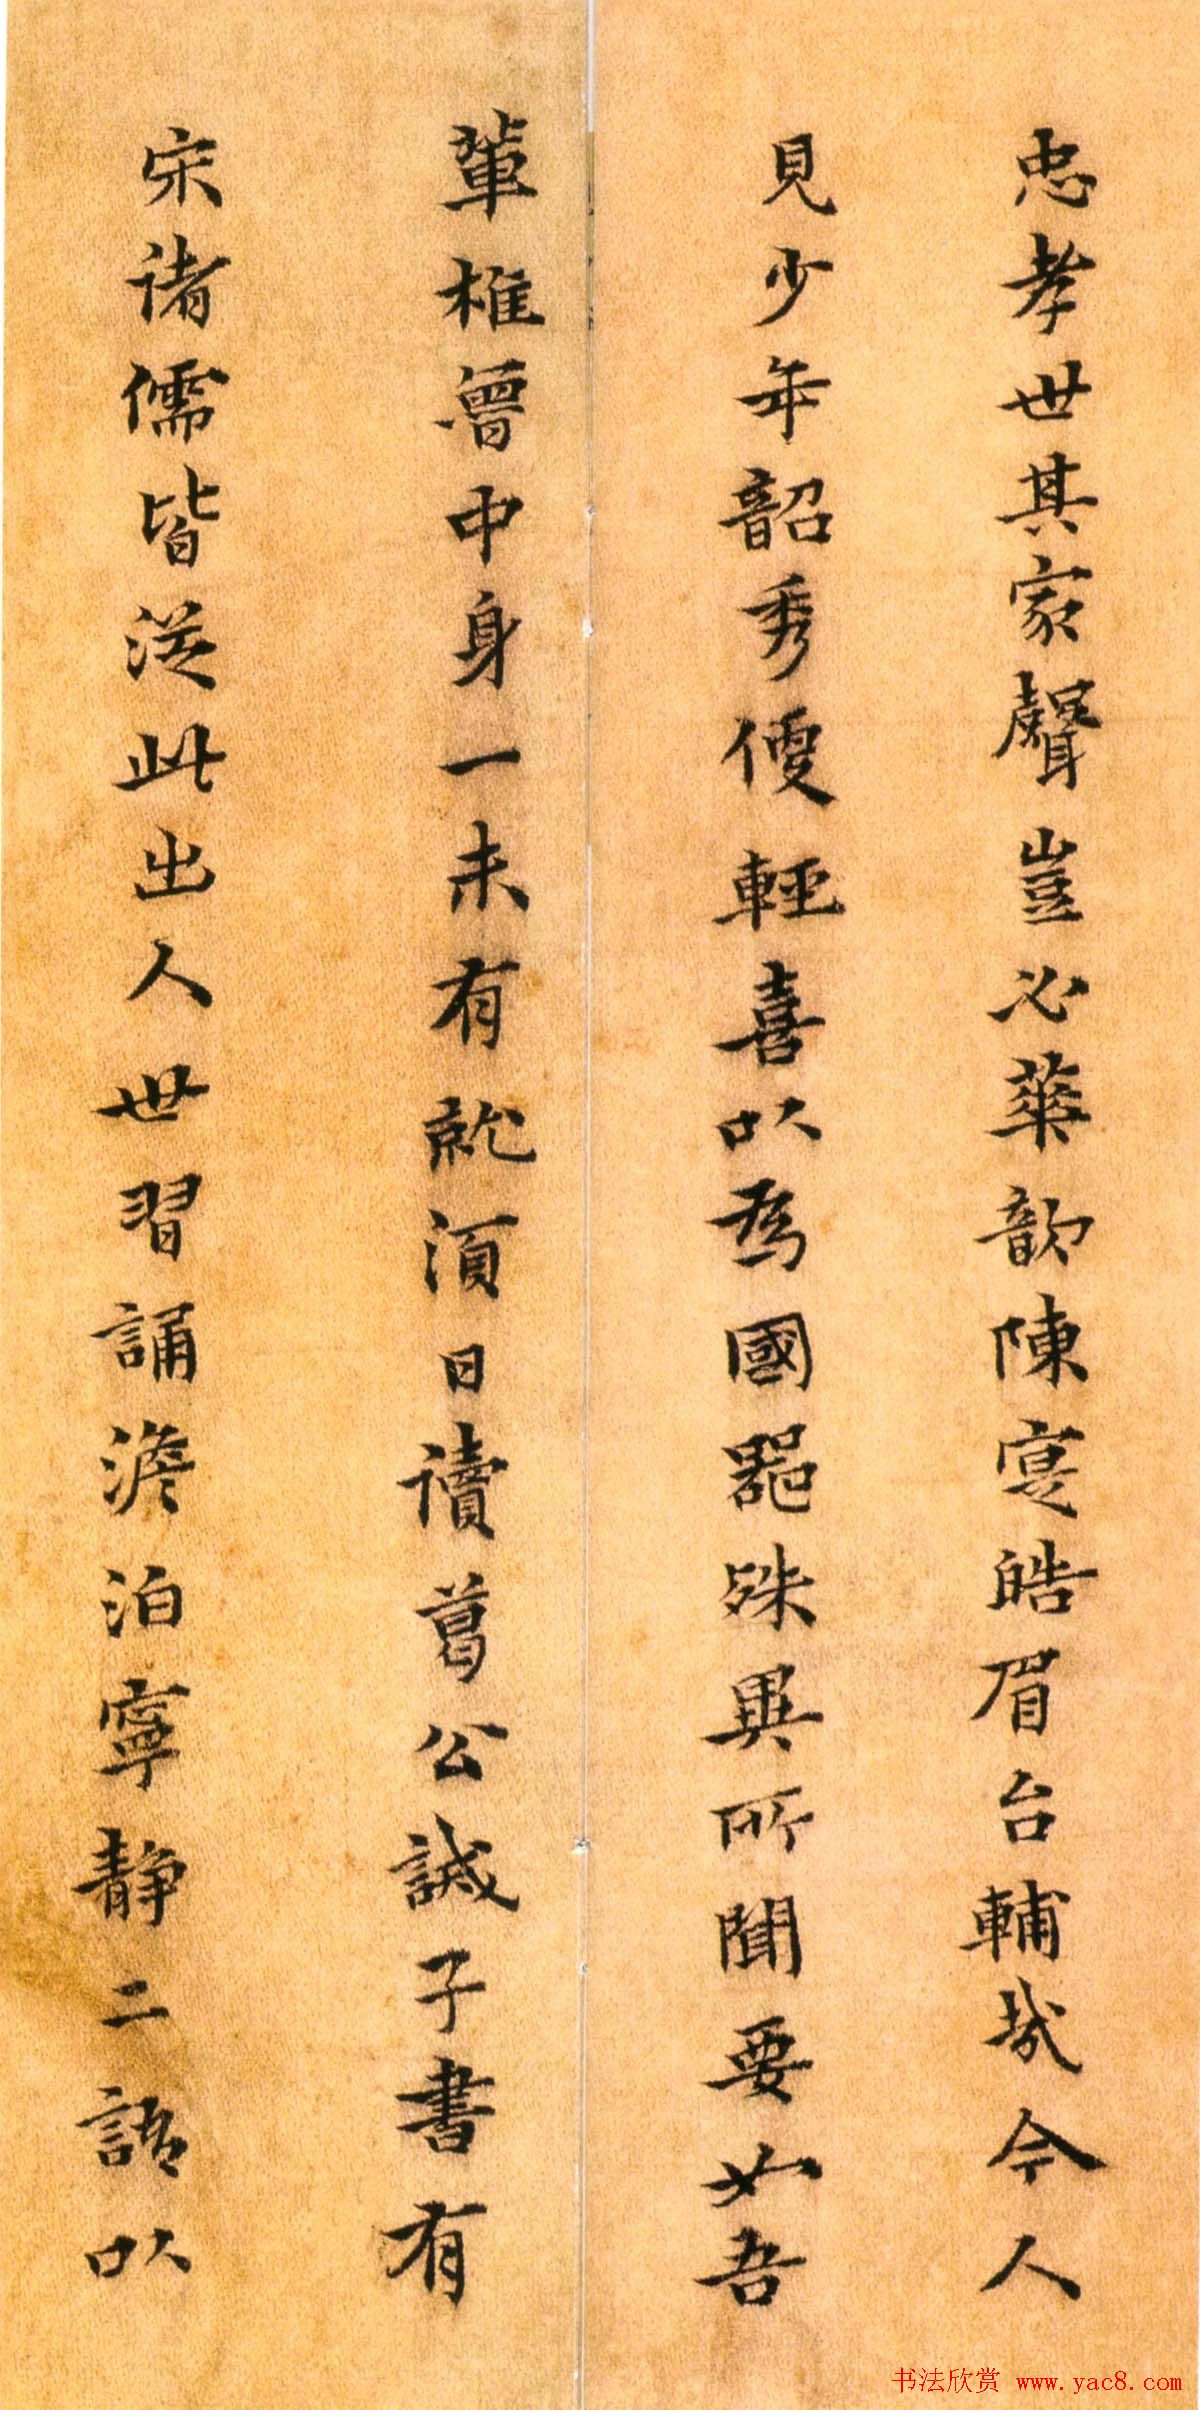 忠孝世其家聲豈必華歆陳寔皓眉台輔哉今人
見少年韶秀便輕喜以為國器殊異所聞要如吾
輩椎魯中身一未有就須日讀葛公誡子書有
宋諸儒皆從此出人世習誦澹泊寧靜二語以
书法欣赏 www.yac8.com